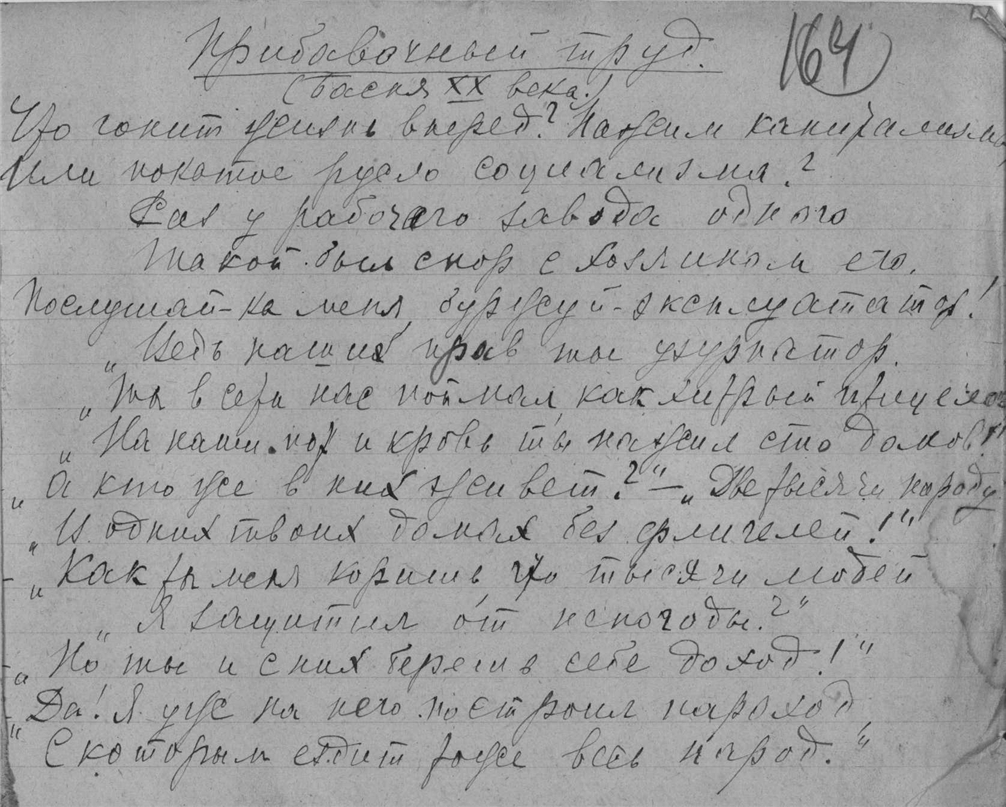 Прибавочный труд.
164
(Басня XX века.)
Что гонит жизнь вперед? Нажим капитализма
Или покатое русло социализма?
Раз у рабочего завода одного
Такой был спор с хозяином его.
Послушай-ка меня, буржуй-эксплуататор!
„Ведь наших прав ты узурпатор.
„Ты в сети нас поймал, как хитрый
„На наши пот и кровь ты нажил сто домов!"
„А кто же в них живет?" — „Две тысячи народу
„И одних твоих домах без флигелей!"
– „Как ты меня коришь, что тысячи людей
„Я защитил от непогоды?"
– „Но ты и с них берешь себе доход!"
– „Да! Я уже на него построил пароход,
„С которым ездит тоже весь народ."